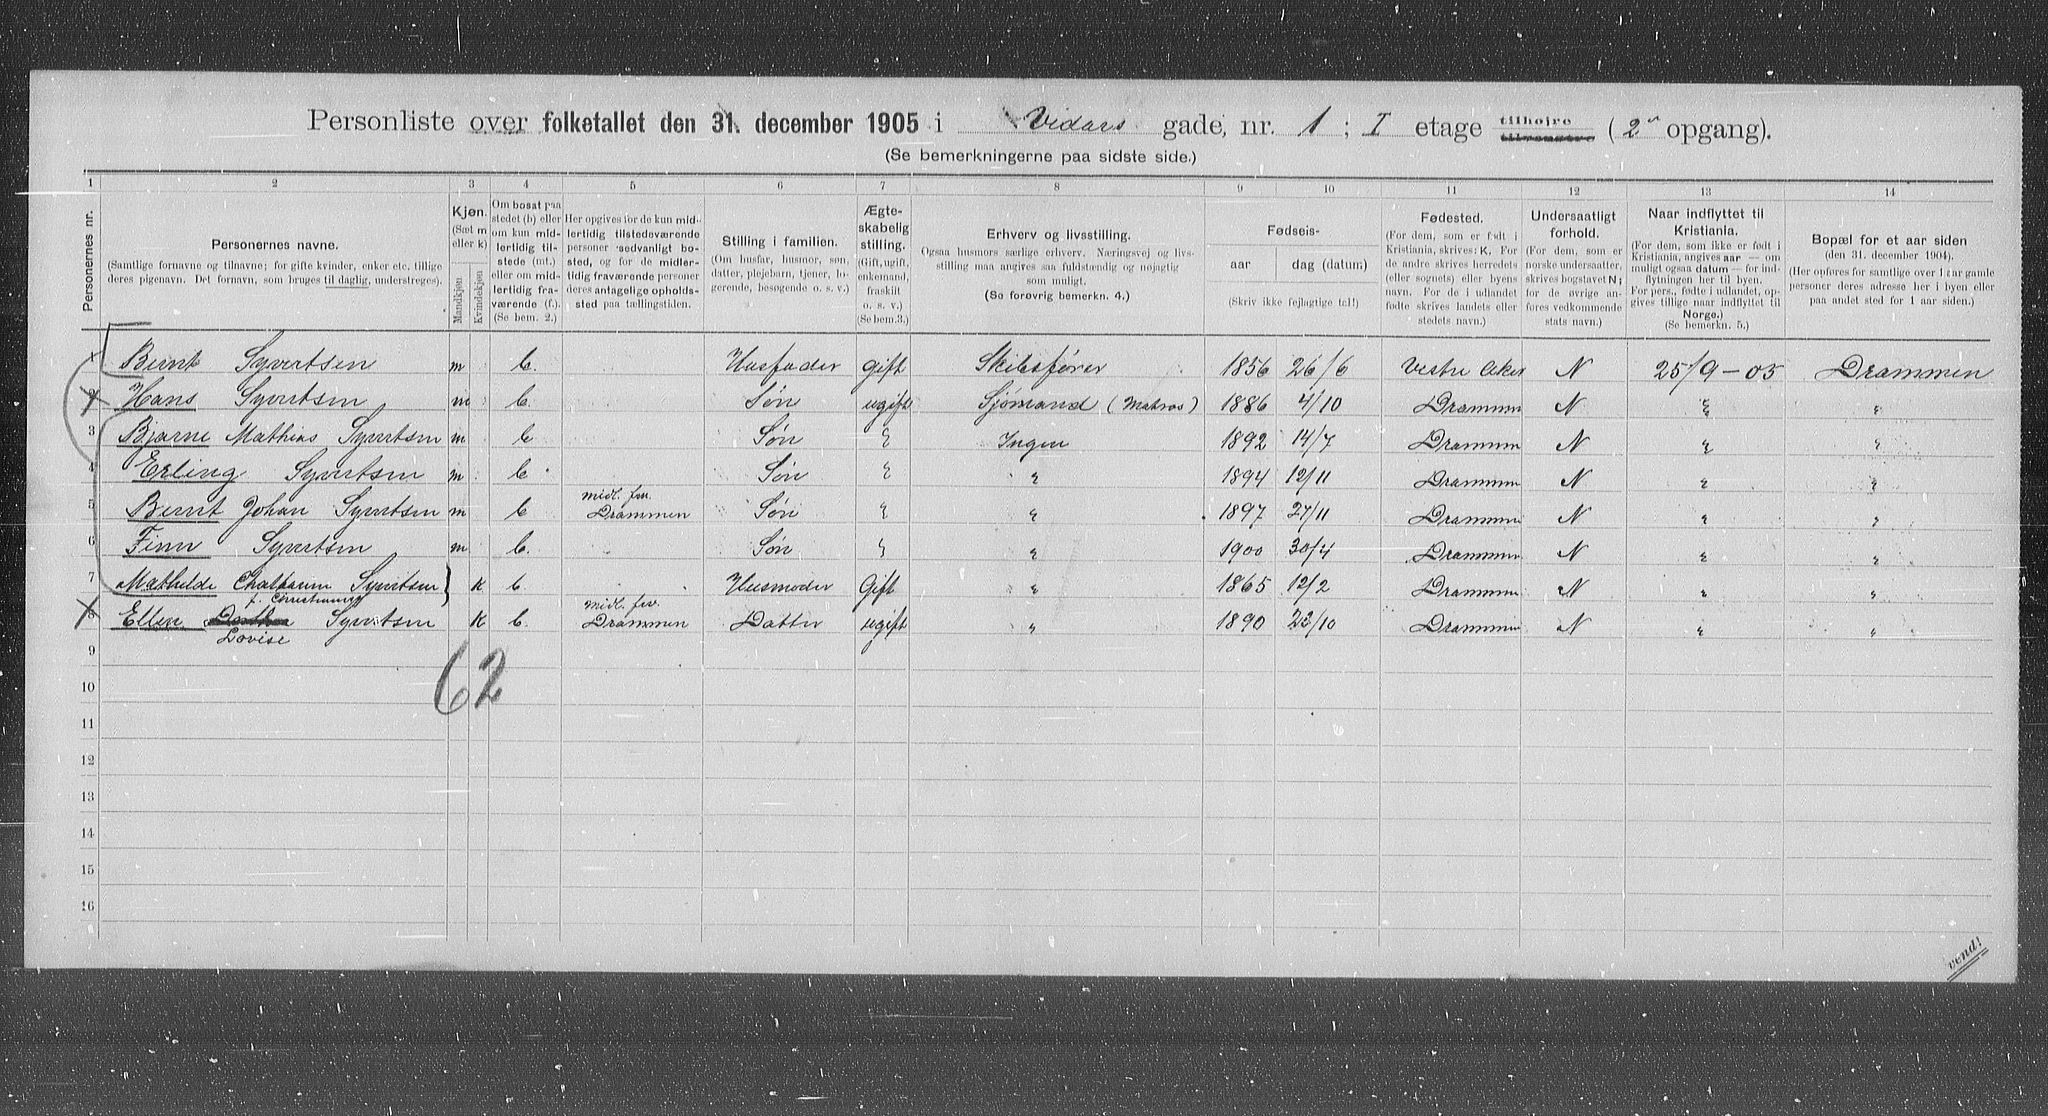 Personliste over folketallet den 31. december 1905 i Vidars gade, nr. 1 ; I etage tilhøjre tilvenstre ( 2 opgang).
(Se bemerkningerne paa sidste side.)
1 2 3 4 5 6 7 8 9 10 11 12 13 14
Personernes nr.
Personernes navne.
(Samtlige fornavne og tilnavne; for gifte kvinder, enker etc. tillige
deres pigenavn. Det fornavn, som bruges til daglig, understreges).
Kjøn.
(Sæt m
eller k)
Mandkjøn
Kvindekjøn
Om bosat paa
stedet (b) eller
om kun mid-
lertidig til-
stede (mt.)
eller om mid-
lertidig fra-
værende (f.).
(Se bem. 2.)
Her opgives for de kun mid-
lertidig tilstedeværende
personer sedvanligt bo-
sted, og for de midler-
tidig fraværende personer
deres antagelige opholds-
sted paa tællingstiden.
Stilling i familien.
(Om husfar, husmor, søn,
datter, plejebarn, tjener, lo-
gerende, besøgende o. s. v.)
Ægte-
skabelig
stilling.
(Gift, ugift,
enkemand,
fraskilt
o. s. v.)
(Se bem. 3.)
Erhverv og livsstilling.
Ogsaa husmors særlige erhverv. Næringsvej og livs-
stilling maa angives saa fuldstændig og nøjagtig
som muligt.
(Se forøvrig bemerkn. 4.)
Fødseis-
aar dag (datum)
(Skriv ikke fejlagtige tal!)
Fødested.
(For dem, som er født i
Kristiania, skrives: K. For
de andre skrives herredets
(eller sognets) eller byens
navn. For de i udlandet
fødte skrives landets eller
stedets navn.)
Undersaatligt
forhold.
(For dem, som er
norske undersaatter,
skrives bogstavet N;
for de øvrige an-
føres vedkommende
stats navn.)
Naar indflyttet til
Kristiania.
(For dem, som ikke er født i
Kristiania, angives aar — om
muligt ogsaa datum — for ind-
flytningen her til byen.
For pers., fødte i udlandet, op-
gives tillige naar indflyttet til
Norge.)
(Se bemerkn. 5.)
Bopæl for et aar siden
(den 31. december 1904).
(Her opføres for samtlige over 1 aar gamle
personer deres adresse her i byen eller
paa andet sted for 1 aar siden.)
1 Bernt Syvertsen m b. Husfader gift Skibsfører 1856 26/6 Vestre Aker N 25/9-05 Drammen
2 Hans Syvertsen m b. Søn ugift Sjømand (Matros) 1886 4/10 Drammen N " "
3 Bjarne Mathias Syvertsen m b Søn " Ingen 1892 14/7 Drammen N " "
4 Erling Syvertsen m b Søn " " 1894 12/11 Drammen N " "
5 Bernt Johan Syvertsen m b midl. frv. Drammen Søn " " 1897 27/11 Drammen N " "
6 Finn Syvertsen m b. Søn " " 1900 30/4 Drammen N " "
7 Mathilde Syvertsen k b. Husmoder Gift " 1865 12/2 Drammen N " "
f. Christiansen
8 Ellen Dorthea Syvertsen k b. midl. frv. Drammen Datter ugift " 1890 22/10 Drammen N " "
Lovise
9
62
10
11
12
13
14
15
16
vend!